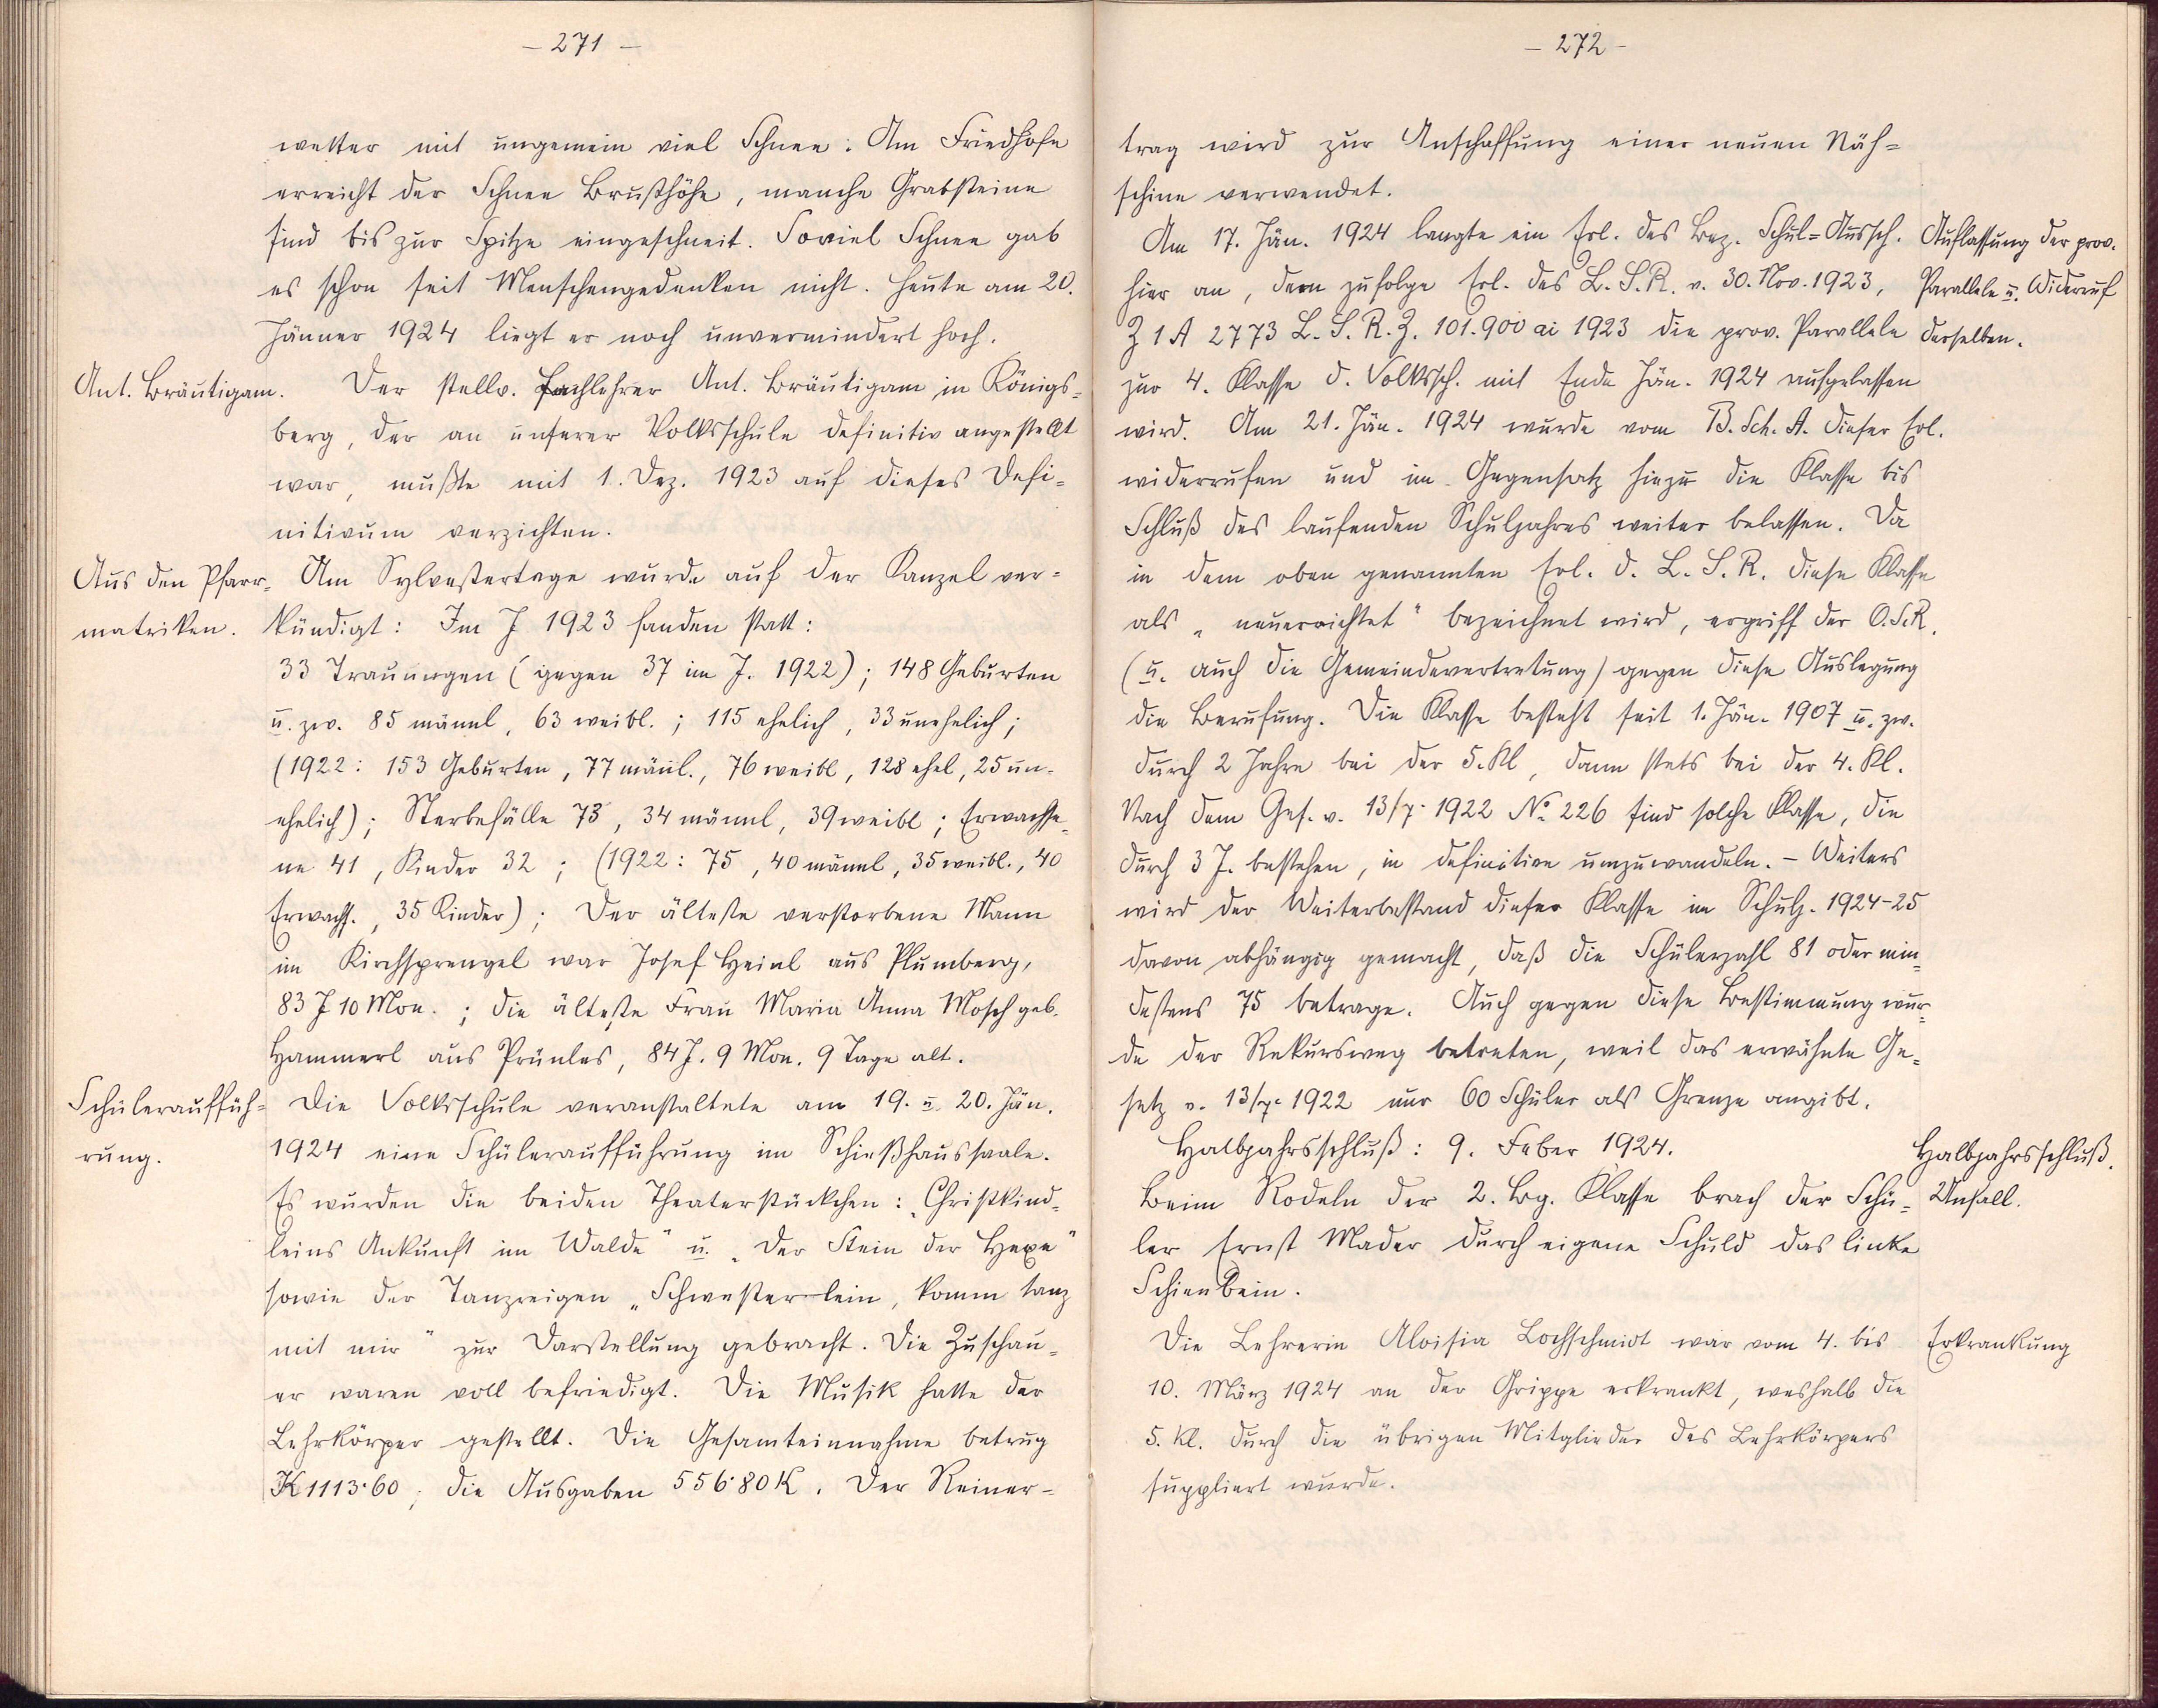 – 271 –
wetter mit ungemein viel Schnee. Am Friedhofe
erreicht der Schnee Brusthöhe, manche Grabsteine
sind bis zur Spitze eingeschneit. Soviel Schnee gab
es schon seit Menschengedenken nicht. Heute am 20.
Jänner 1924 liegt er noch unvermindert hoch.
Ant. Bräutigam. Der stellv. Fachlehrer Ant. Bräutigam in Königs-
berg, der an unserer Volksschule definitiv angestellt
war, mußte mit 1. Dez. 1923 auf dieses Defi-
nitivum verzichten.
Aus den Pfarr- Am Sylvestertage wurde auf der Kanzel ver-
matriken. kündigt: Im J 1923 fanden statt:
33 Trauungen (gegen 37 im J. 1922); 148 Geburten
u. zw. 85 männl, 63 weibl.; 115 ehelich, 33 unehelich;
(1922: 153 Geburten, 77 männl., 76 weibl, 128 ehel, 25 un-
ehelich); Sterbefälle 73, 34 männl, 39 weibl; Erwachse-
ne 41, Kinder 32; (1922: 75, 40 männl, 35 weibl., 40
Erwachs., 35 Kinder); Der älteste verstorbene Mann
im Kirchsprengel war Josef Heinl aus Plumberg,
83 J 10 Mon.; die älteste Frau Maria Anna Mosch geb.
Hammerl aus Prünles, 84 J. 9 Mon. 9 Tage alt.
Schülerauffüh- Die Volksschule veranstaltete am 19. u. 20. Jän.
rung. 1924 eine Schüleraufführung im Schießhaussaale.
Es wurden die beiden Theaterstückchen: „Christkind-
leins Ankunft im Walde" u. „Der Stein der Hexe"
sowie der Tanzreigen „Schwesterlein, komm tanz
mit mir" zur Darstellung gebracht. Die Zuschau-
er waren voll befriedigt. Die Musik hatte der
Lehrkörper gestellt. Die Gesamteinnahme betrug
K 1113·60, die Ausgaben 556·80 K. Der Reiner-
– 272 –
trag wird zur Anschaffung einer neuen Näh-
schine verwendet.
Am 17. Jän. 1924 langte ein Erl. des Bez. Schul-Aussch. Auflassung der prov.
hier an, dem zufolge Erl. des L. S. R. v. 30. Nov. 1923, Parallele u. Widerruf
Z 1 A 2773 L. S. R. Z. 101.900 ai 1923 die prov. Parallele derselben.
zur 4. Klasse d. Volkssch. mit Ende Jän. 1924 aufgelassen
wird. Am 21. Jän. 1924 wurde vom B. Sch. A. dieser Erl.
widerrufen und im Gegensatz hiezu die Klasse bis
Schluß des laufenden Schuljahres weiter belassen. Da
in dem oben genannten Erl. d. L. S. R. diese Klasse
als „neuerrichtet" bezeichnet wird, ergriff der O. S. R.
(u. auch die Gemeindevertretung) gegen diese Auslegung
die Berufung. Die Klasse besteht seit 1. Jän. 1907 u. zw.
durch 2 Jahre bei der 5. Kl, dann stets bei der 4. Kl.
Nach dem Ges. v. 13/7. 1922 No 226 sind solche Klasse, die
durch 3 J. bestehen, in definitive umzuwandeln. – Weiters
wird der Weiterbestand dieser Klasse im Schulj. 1924-25
davon abhängig gemacht, daß die Schülerzahl 81 oder min-
destens 75 betrage. Auch gegen diese Bestimmung wur-
de der Rekursweg betreten, weil das erwähnte Ge-
setz v. 13/7. 1922 nur 60 Schüler als Grenze angibt.
Halbjahrsschluß: 9. Feber 1924. Halbjahrsschluß.
Beim Rodeln der 2. Bg. Klasse brach der Schü- Unfall.
ler Ernst Mader durch eigene Schuld das linke
Schienbein.
Die Lehrerin Aloisia Lochschmidt war vom 4. bis Erkrankung
10. März 1924 an der Grippe erkrankt, weshalb die
5. Kl. durch die übrigen Mitglieder des Lehrkörpers
suppliert wurde.